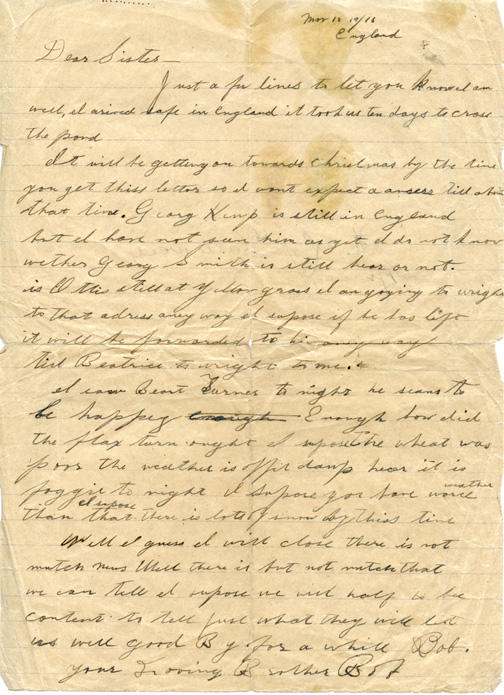 Nov 18 19/16
England
Dear Sister —
Just a fu lines to let you know I am
well, I arived safe in England it took us ten days to cross
the pond
It will be getting on towards Christmas by the time
you get thiss letter so I wont expect a anser till abou
that time. Georg Kemp is still in England
but I have not seen him as yet I do not know
wether Georg Smith is still hear or not.
is Otto still at Yellow grass I an going to wright
to that adress any way I supose if he has left
it will be forwarded to him any way
tell Beatrice to wright to me.
I saw Beart Turner to night he seams to
be happey Enough how did
the flax turn ought I supose the wheat was
poor the weather is offil damp hear it is
foggie to night I supose you have worce weather
than that I supose there is lots of snow by thiss time
Well I guess I will close there is not
mutch news Well there is but not mutch that
we can tell I supose we will haft to be
content to tell just what they will let
us well good By for a while Bob.
your Loving Brother Bob